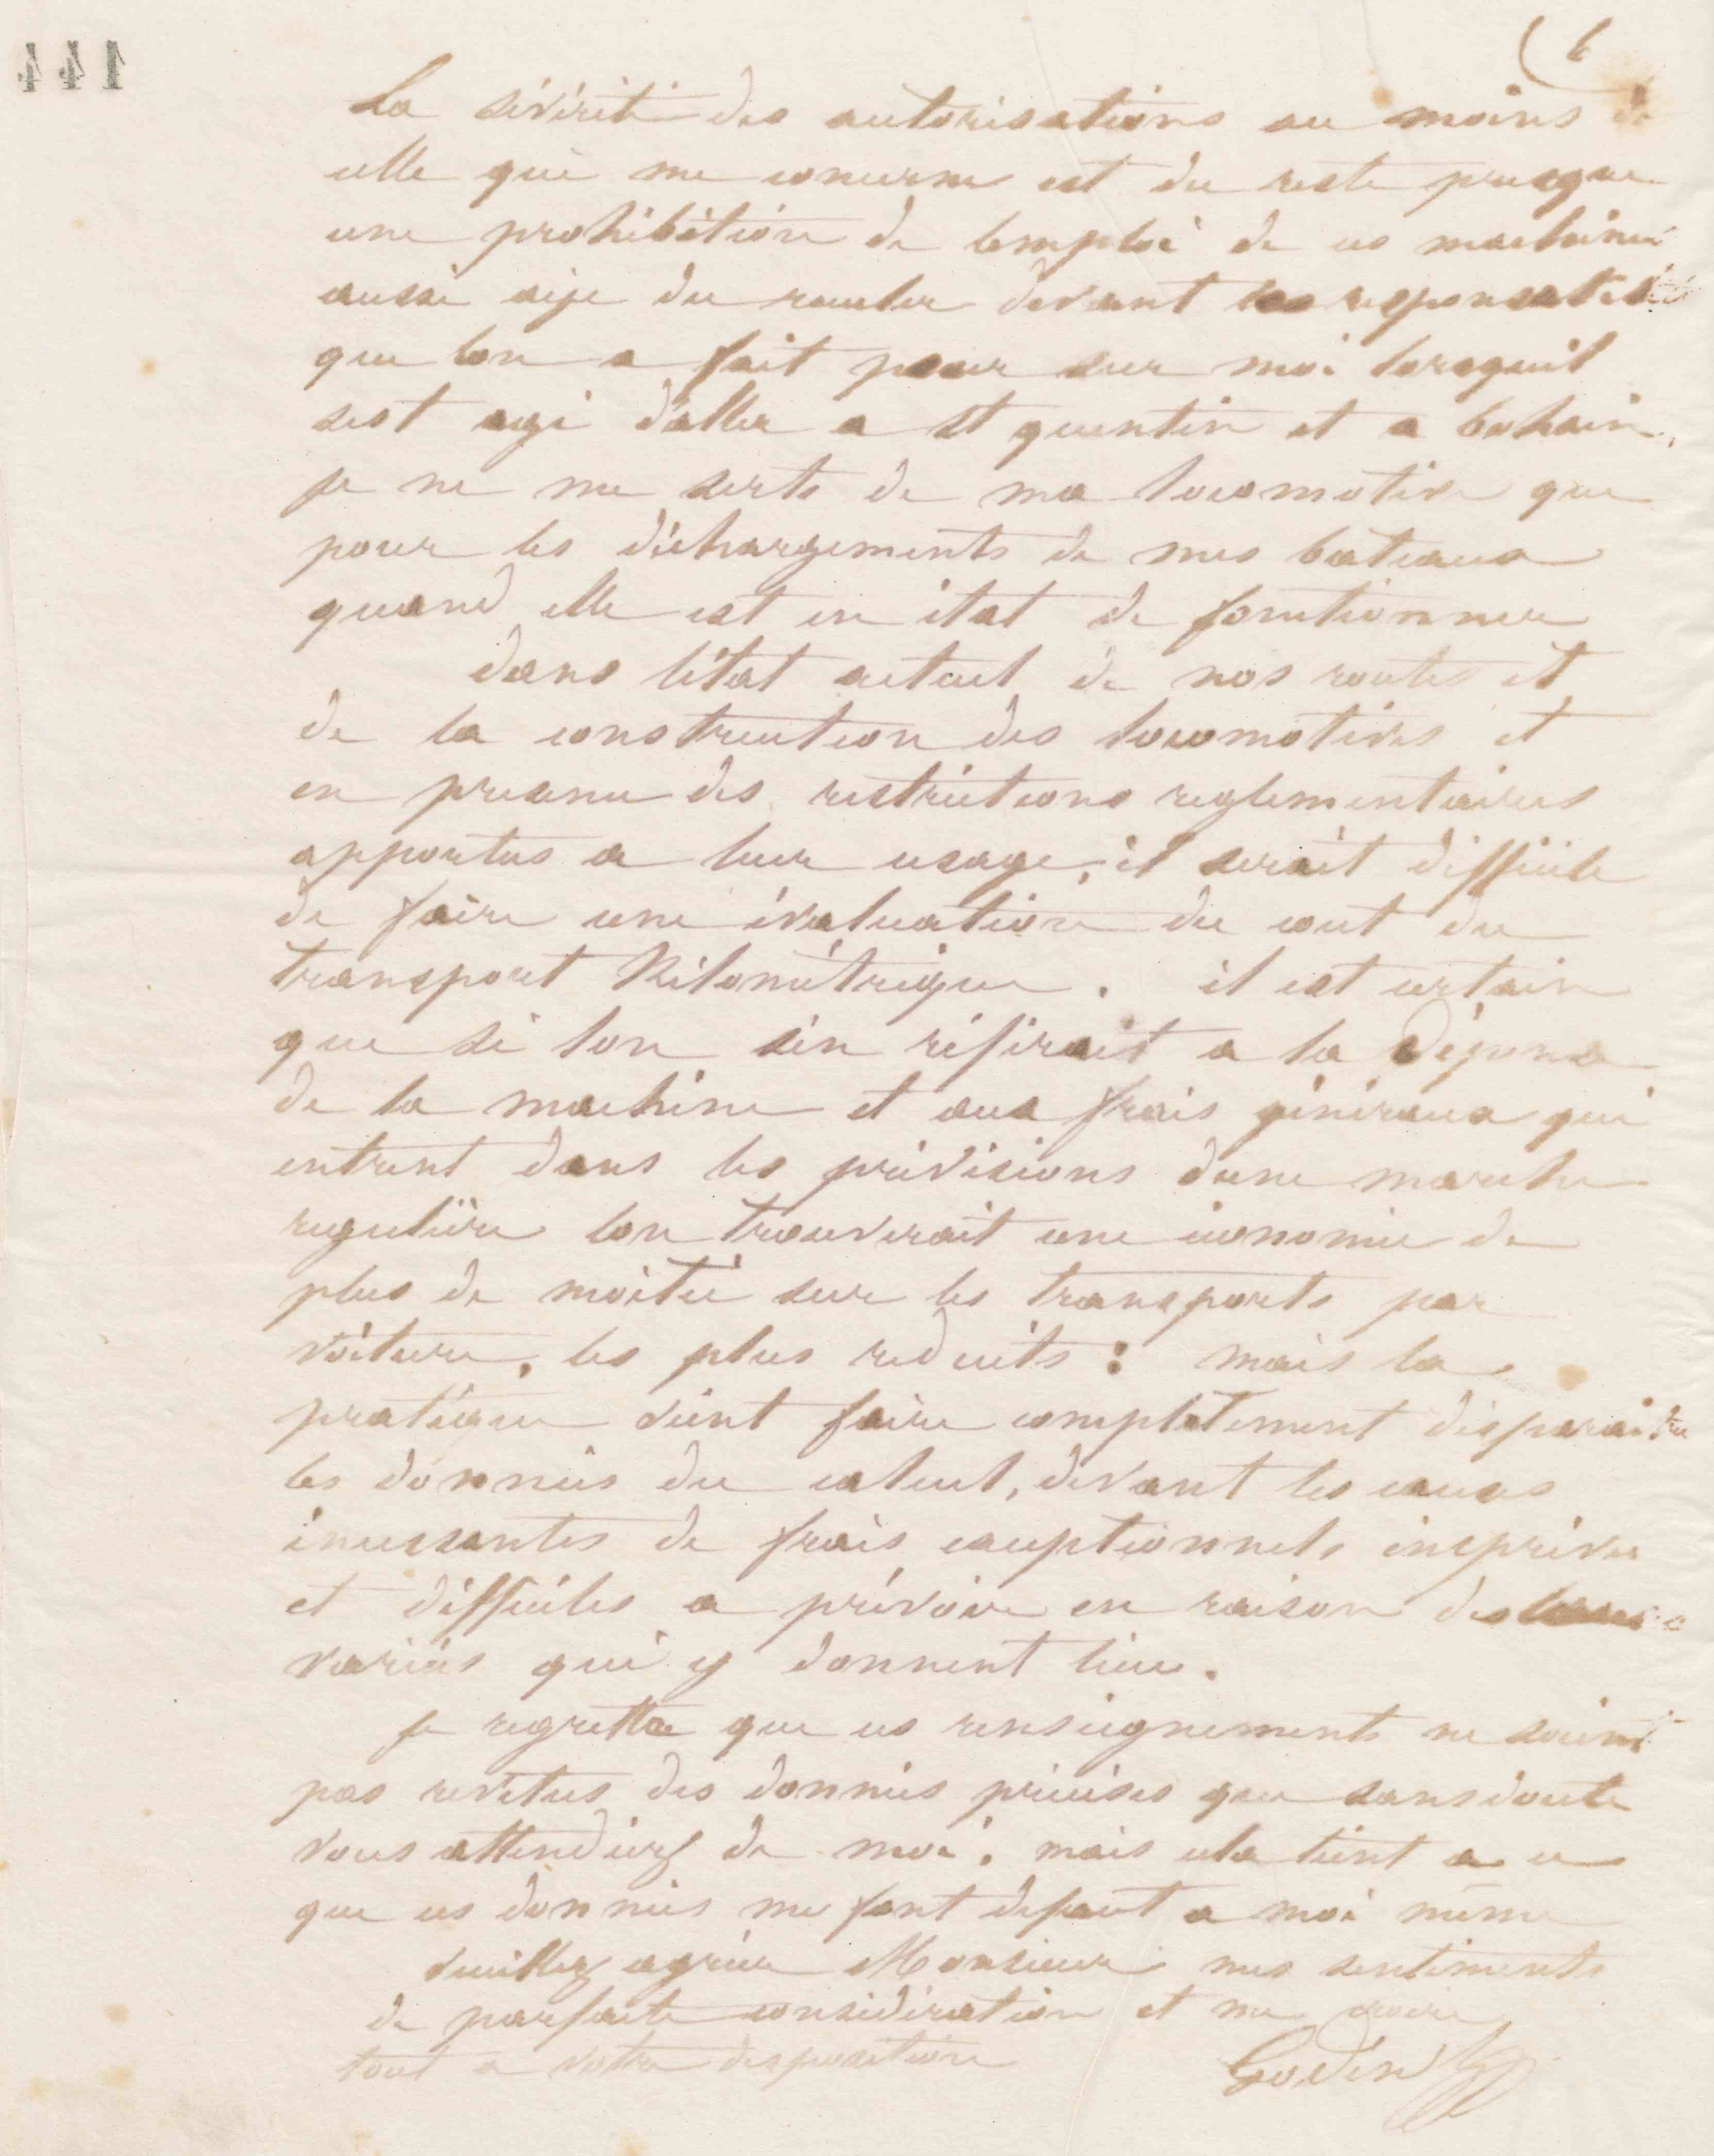 144
(6
La sévérité des autorisations au moins de
celle qui me concerne est du reste presque
une prohibition de lemploi de ces machines
aussi aije du reculer devant les responsabilités
que lon a fait peser sur moi lorsquil
sest agi daller a St quentin et a bohain,
je ne me serts de ma locomotive que
pour les déchargements de mes bateaux
quand elle est en état de fonctionner
dans létat actuel de nos routes et
de la construction des locomotives et
en presence des restrictions reglementaires
apportees a leur usage, il serait difficile
de faire une évaluation du cout du
transport Kilométrique. il est certain
que si lon sén référait a la dépense
de la machine et aux frais généraux qui
entrent dans les prévisions dune marche
regulière lon trouverait une économie de
plus de moitié sur les transports par
voiture, les plus reduits : mais la
pratique vient faire complètement disparaitre
les données du calcul, devant les causes
incessantes de frais exceptionnels imprévus
et difficiles a prévoir en raison des causes
variées qui y donnent lieu.
je regrette que ces renseignements ne soient
pas revetus des données précises que sans doute
vous attendiez de moi. mais cela tient a ce
que ces données me font defaut a moi même
veuillez agréer Monsieur mes sentiments
de parfaite considération et me croire
tout a votre disposition
Godin